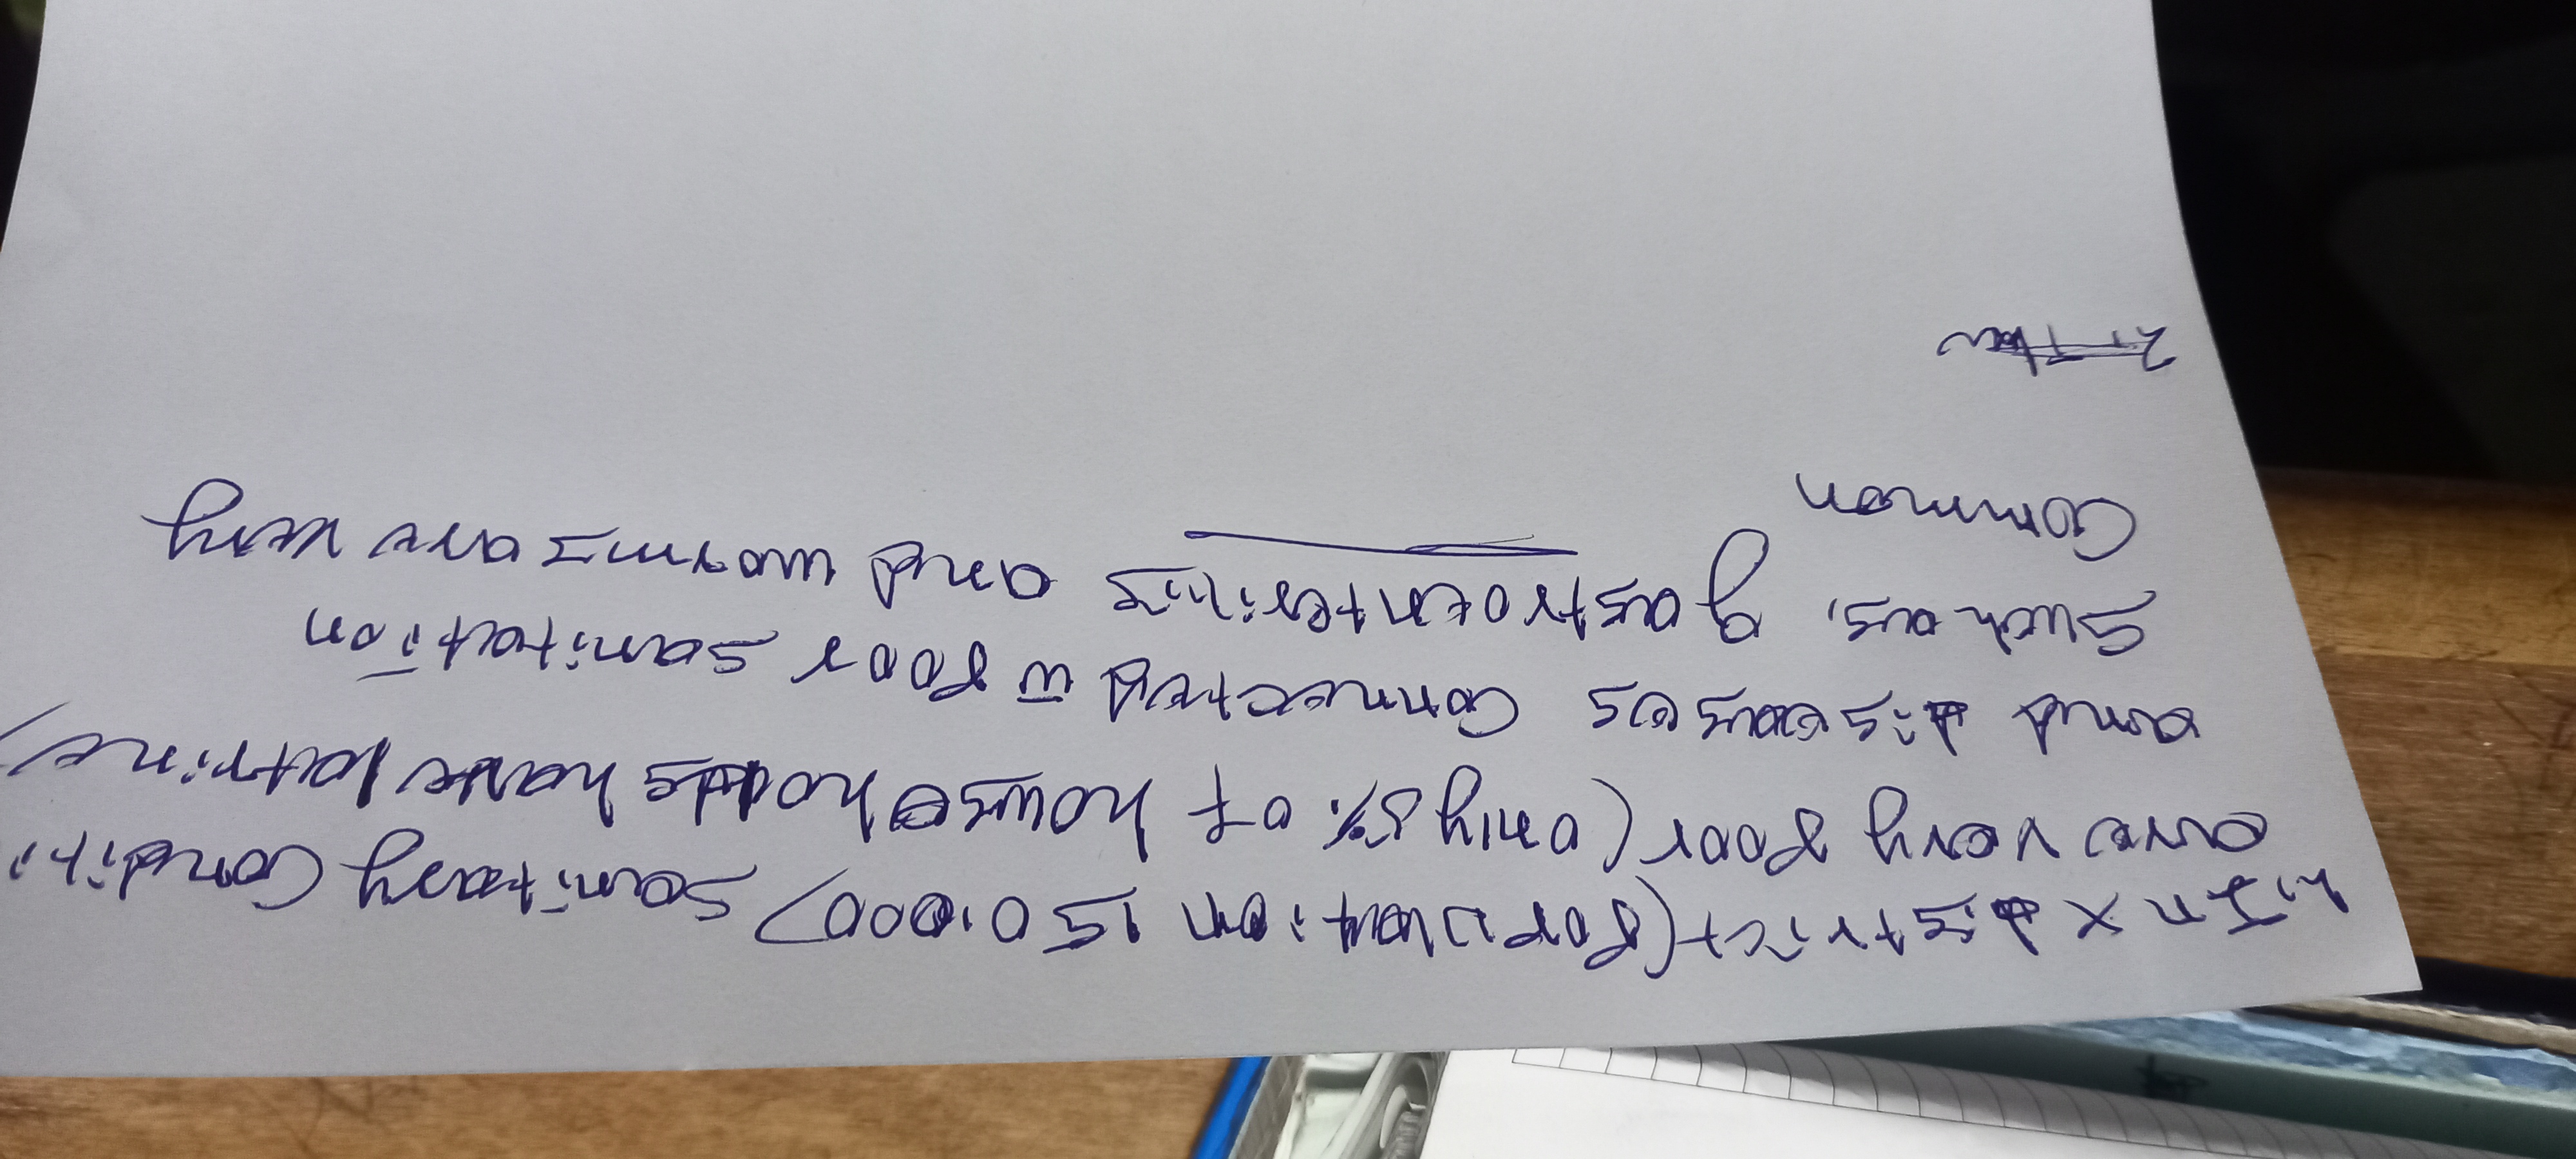 1. In X district (Population 150.000) Sanitary Conditi
are very poor (only 5% of households have latrine)
and diseases Connected w̄ poor sanitation
Such as, gastroenteritis and worms are very
Common
2.